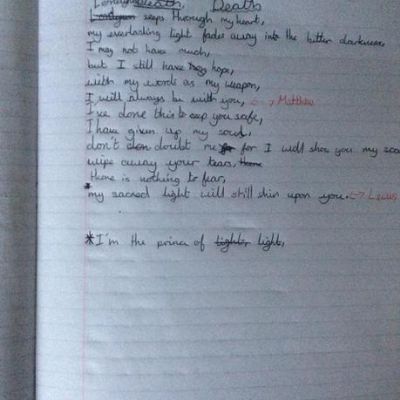 Death Death
seeps through my heart,
my everlasting light fades away into the bitter darkness,
I may not have much,
but I still have hope,
with my words as my weapon,
I will always be with you, <-> Matthew
I've done this to keep you safe,
I have given up my soul,
don't doubt me for I will show you my
wipe away your tears,
there is nothing to fear,
*my sacred light will still shin upon you. <-> Lewis
*I'm the prince of light,